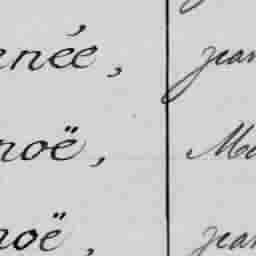 enée, jean
noë, Ma
noë, jean